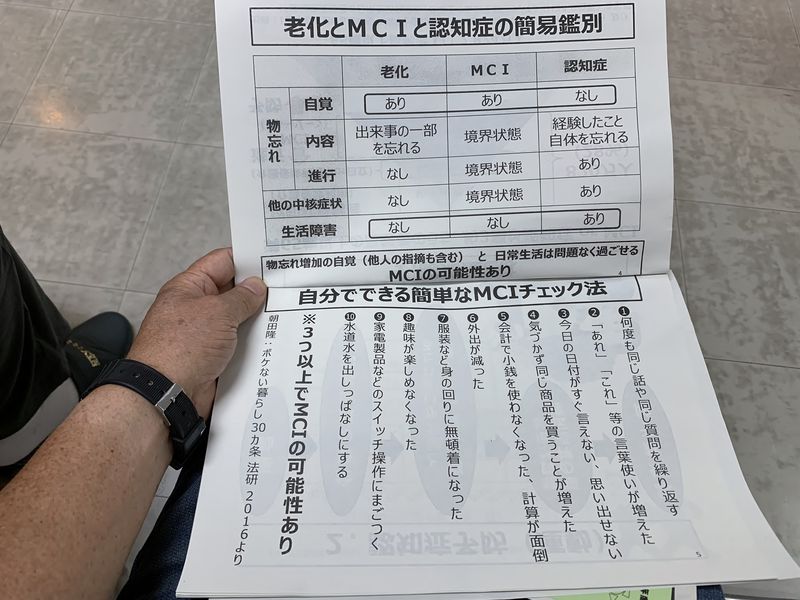 老化とMCIと認知症の簡易鑑別
老化 MCI 認知症
物忘れ
自覚 あり あり なし
内容 出来事の一部を忘れる 境界状態 経験したこと自体を忘れる
進行 なし 境界状態 あり
他の中核症状 なし 境界状態 あり
生活障害 なし なし あり
物忘れ増加の自覚（他人の指摘も含む） と 日常生活は問題なく過ごせる
MCIの可能性あり
4
自分でできる簡単なMCIチェック法
❶何度も同じ話や同じ質問を繰り返す
❷「あれ」「これ」等の言葉使いが増えた
❸今日の日付がすぐ言えない、思い出せない
❹気づかず同じ商品を買うことが増えた
❺会計で小銭を使わなくなった、計算が面倒
❻外出が減った
❼服装など身の回りに無頓着になった
❽趣味が楽しめなくなった
❾家電製品などのスイッチ操作にまごつく
❿水道水を出しっぱなしにする
※３つ以上でMCIの可能性あり
朝田隆：ボケない暮らし 30カ条 法研 2016より
5